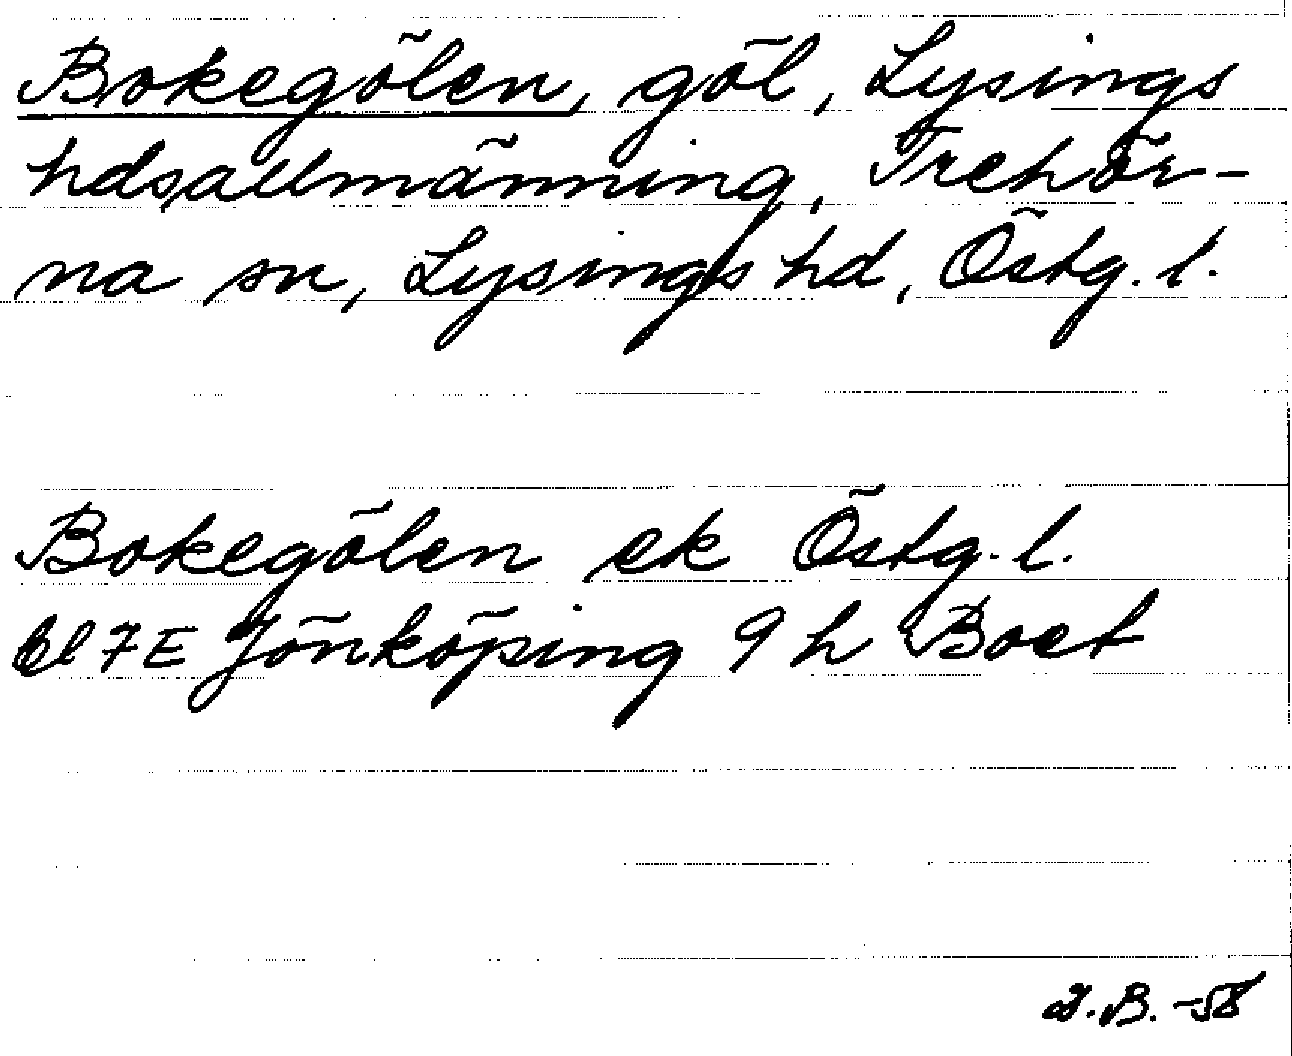 Bokegölen, göl, Lysings
hdsallmänning, Trehör-
na sn, Lysings hd, Östg. l.
Bokegölen ek Östg. l.
bl 7E Jönköping 9 h Boet
J.B. -58